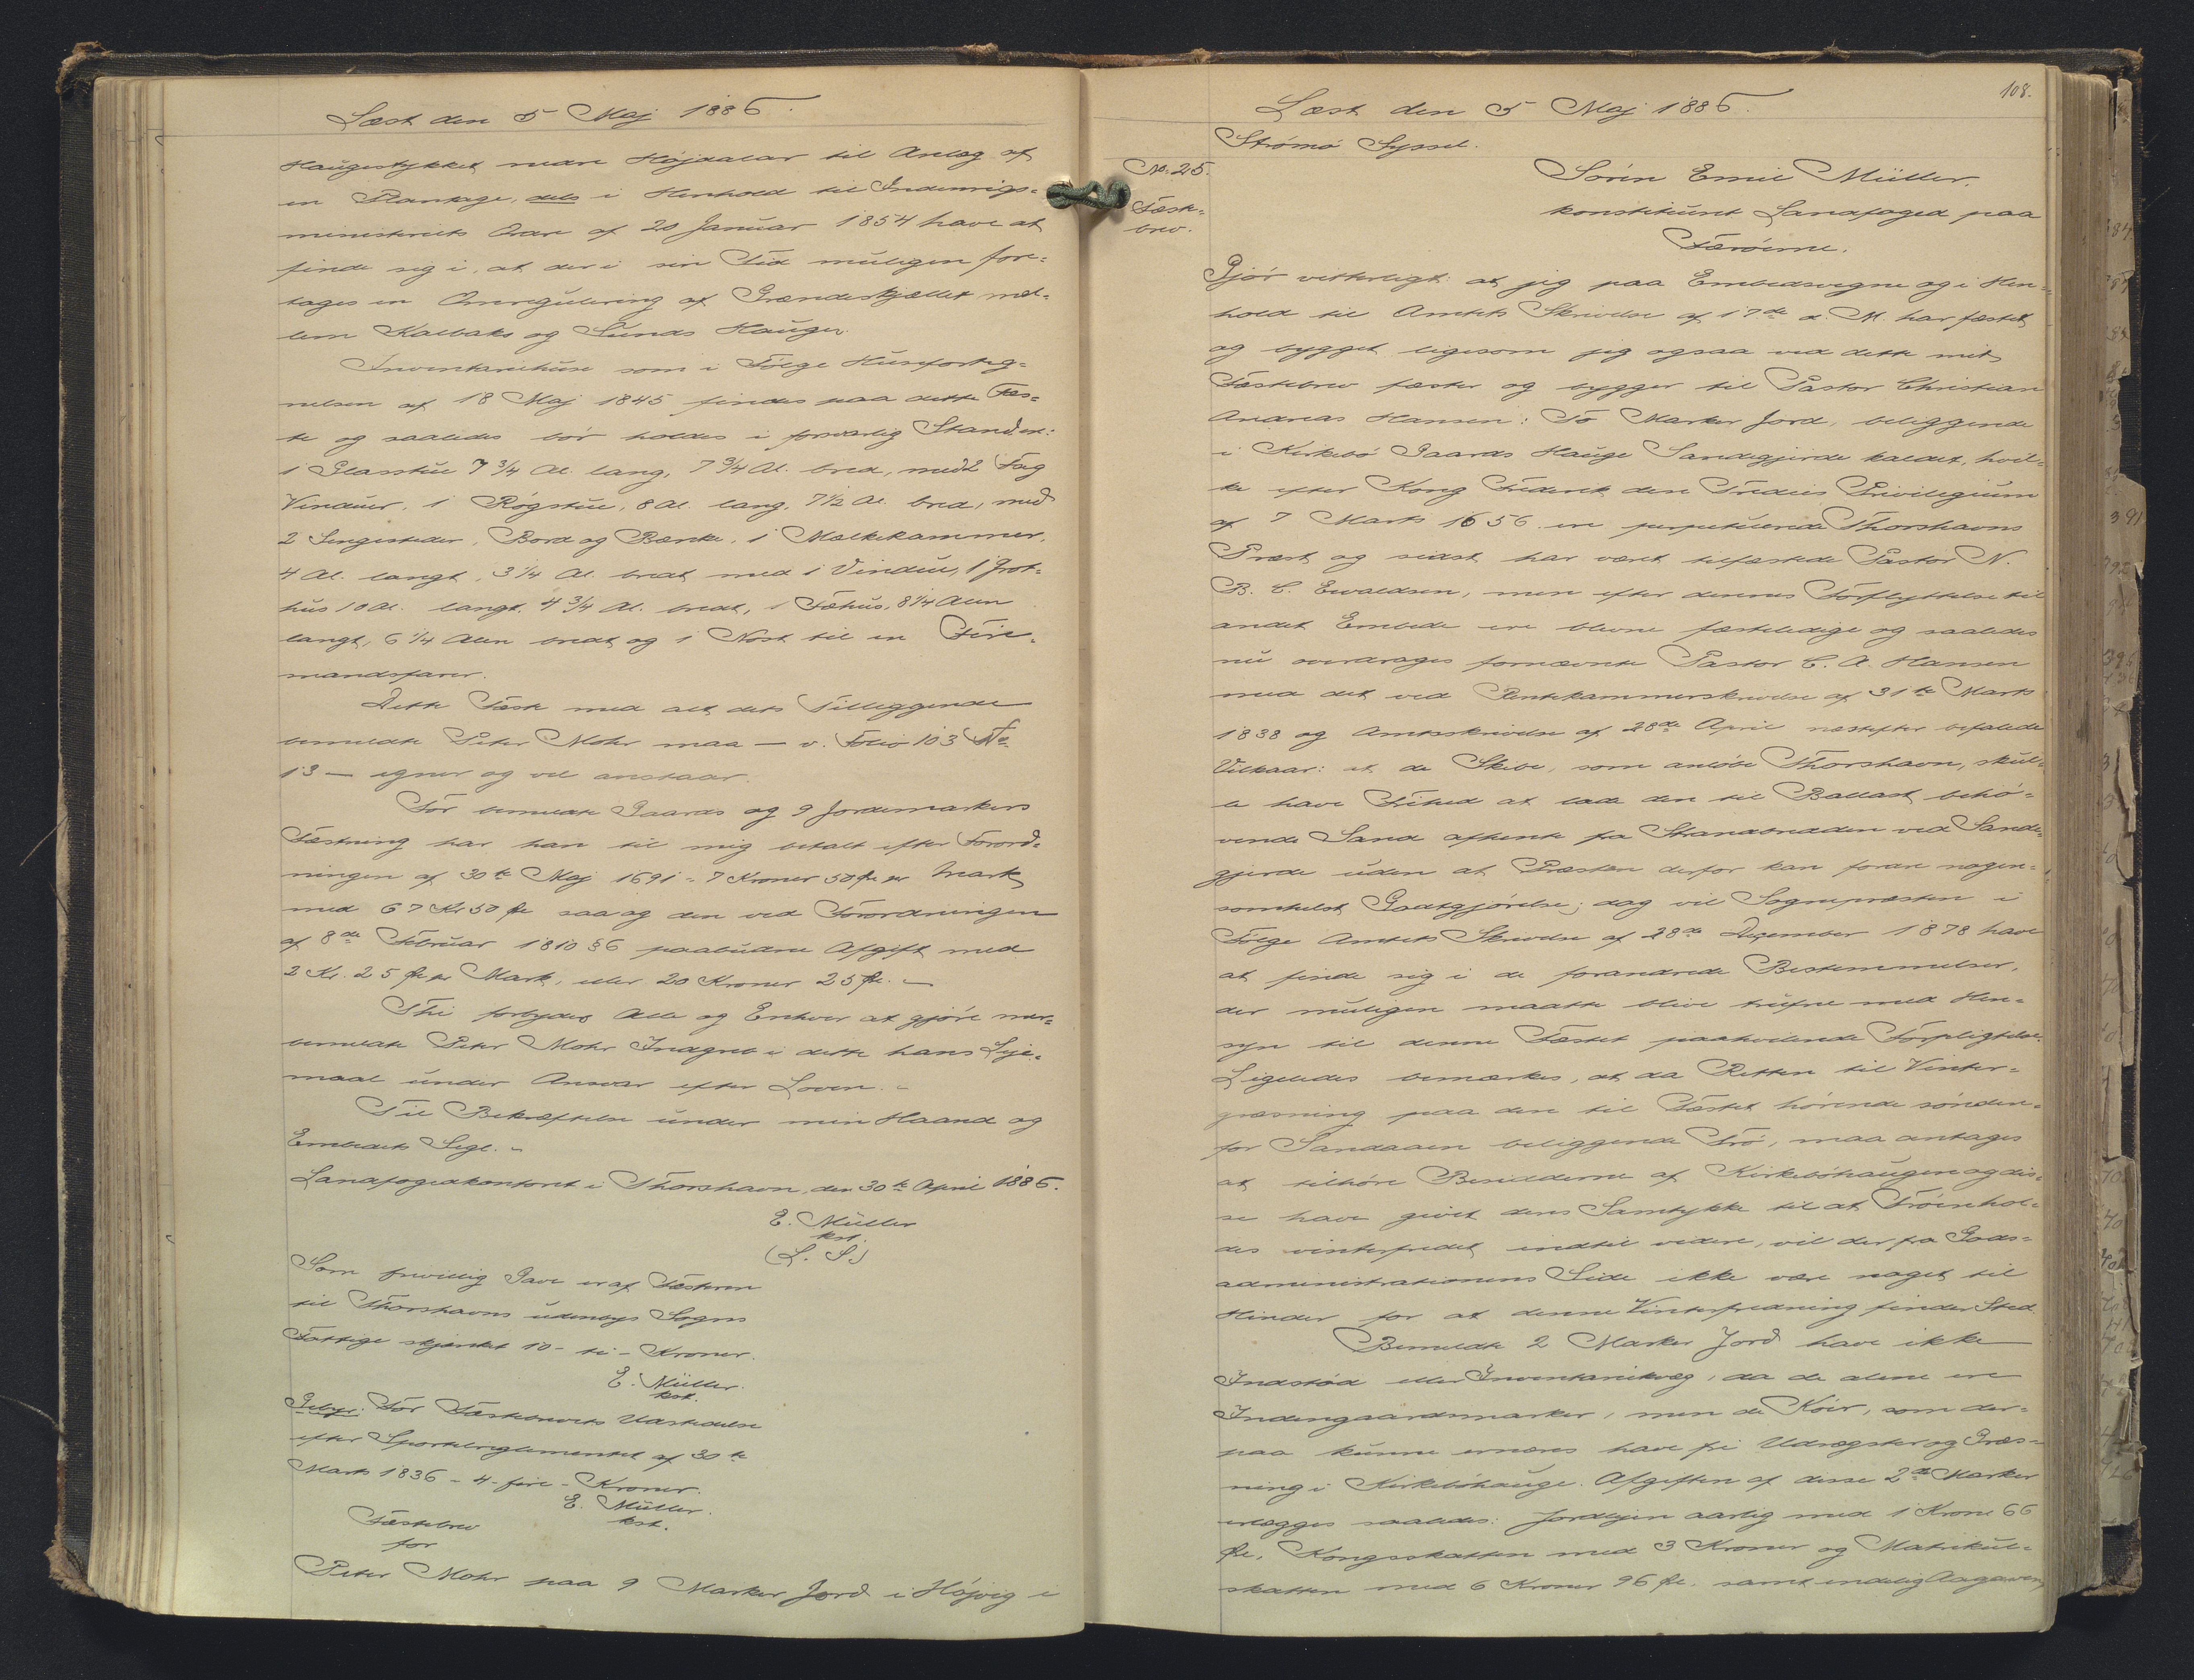 Læst den 5 Maj 1886.
Haugestykket nedre Højdalar til Anlæg af
en Plantage, dels i Henhold til Indenrigs=
ministeriets Ordre af 20 Januar 1854 have at
finde sig i, at der i sin Tid muligen fore=
tages en Omregulering af Grændeskjællet mel=
lem Kalbaks og Sunds Hauger.
Inventariehuse som i Følge Huseforteg=
nelsen af 18 Maj 1845 findes paa dette Fæs=
te og saaledes bør holdes i forsvarlig Stand er:
1 Glasstue 7 3/4 Al. lang, 7 3/4 Al. bred, med 2 Fag
Vinduer, 1 Røgstue, 8 Al. lang, 7 1/2 Al. bred, med
2 Sengesteder, Bord og Bænke, 1 Mælkekammer,
4 Al. langt, 3 1/4 Al. bredt med 1 Vindue, 1 Hrot=
hus 10 Al. langt, 4 3/4 Al. bredt, 1 Fæhus, 8 1/4 Alen
langt, 6 1/4 Alen bredt og 1 Nøst til en Fire=
mandsfarer.
Dette Fæste med alt dets Tilliggende
bemeldte Peter Mohr maa — v. Folio 103 No
13 — egner og vel anstaar.
For bemeldte Gaards og 9 Jordemarkers
Fæstning har han til mig betalt efter Forord=
ningen af 30te Maj 1691 = 7 Kroner 50 Øre pr Mark
med 67 Kr 50 Øre saa og den ved Forordningen
af 8de Februar 1810 §6 paabudne Afgift med
2 Kr. 25 Øre pr Mark, eller 20 Kroner 25 Øre. —
Thi forbydes Alle og Enhver at gjøre mer=
bemeldte Peter Mohr Indgreb i dette hans Leje=
maal under Ansvar efter Loven. -
Til Bekræftelse under min Haand og
Embedets Segl. -
Landfogedkontoret i Thorshavn, den 30te April 1886.
E. Müller
kst.
(L. S.)
Som frivillig Gave er af Fæsteren
til Thorshavns udenbys Sogns
Fattige skjænket 10 - ti - Kroner.
E. Müller.
kst.
Gebyr: For Fæstebrevets Udstedelse
efter Sportelreglementet af 30te
Marts 1836 - 4 - fire - Kroner.
E. Müller.
kst.
Fæstebrev
for
Peter Mohr paa 9 Marker Jord i Højvig i
108.
Læst den 5 Maj 1886.
Strømø Syssel.
No. 25.
Fæste=
brev.
Søren Emil Müller,
konstitueret Landfoged paa
Færøerne.
Gjør vitterligt: at jeg paa Embedsvegne og i Hen=
hold til Amtets Skrivelse af 17de d. M. har fæstet
og bygget ligesom jeg ogsaa ved dette mit
Fæstebrev fæster og bygger til Pastor Christian
Andreas Hansen: To Marker Jord, beliggende
i Kirkebø Gaards Hauge Sandegjerde kaldet, hvil=
ke efter Kong Frederik den Tredies Privilegium
af 7 Marts 1656 ere perpetuerede Thorshavns
Præst og sidst har været tilfæstede Pastor N.
B. C. Ewaldsen, men efter dennes Forflyttelse til
andet Embede ere blevne fæsteledige og saaledes
nu overdrages fornævnte Pastor C. A. Hansen
med det ved Rentekammerskrivelse af 31te Marts
1838 og Amtsskrivelse af 28de April næstefter befalede
Vilkaar: at de Skibe, som anløbe Thorshavn, skul=
le have Frihed at lade den til Ballast behø=
vende Sand afhente fra Strandbredden ved Sande=
gjerde uden at Præsten derfor kan fordre nogen=
somhelst Godtgjørelse; dog vil Sognepræsten i
Følge Amtets Skrivelse af 28de December 1878 have
at finde sig i de forandrede Bestemmelser,
der muligen maatte blive trufne med Hen=
syn til denne Fæstet paahvilende Forpligtelse.
Ligeledes bemærkes, at da Retten til Vinter=
græsning paa den til Fæstet hørende sønden=
for Sandaaen beliggende Trø, maa antages
at tilhøre Besidderne af Kirkebøhaugen og dis=
se have givet deres Samtykke til at Trøen hol=
des vinterfredet indtil videre, vil der fra Gods=
administrationens Side ikke være noget til
Hinder for at denne Vinterfredning finder Sted.
Bemeldte 2 Marker Jord have ikke
Indstød eller Inventarikvæg, da de alene ere
Indengaardsmarker, men de Køer, som der=
paa kunne ernæres have fri Udrægster og Græs=
ning i Kirkebøhauge. Afgiften af disse 2de Marker
erlægges saaledes: Jordlejen aarlig med 1 Krone 66
Øre, Kongsskatten med 3 Kroner og Matrikul=
skatten med 6 Kroner 96 Øre. samt endelig